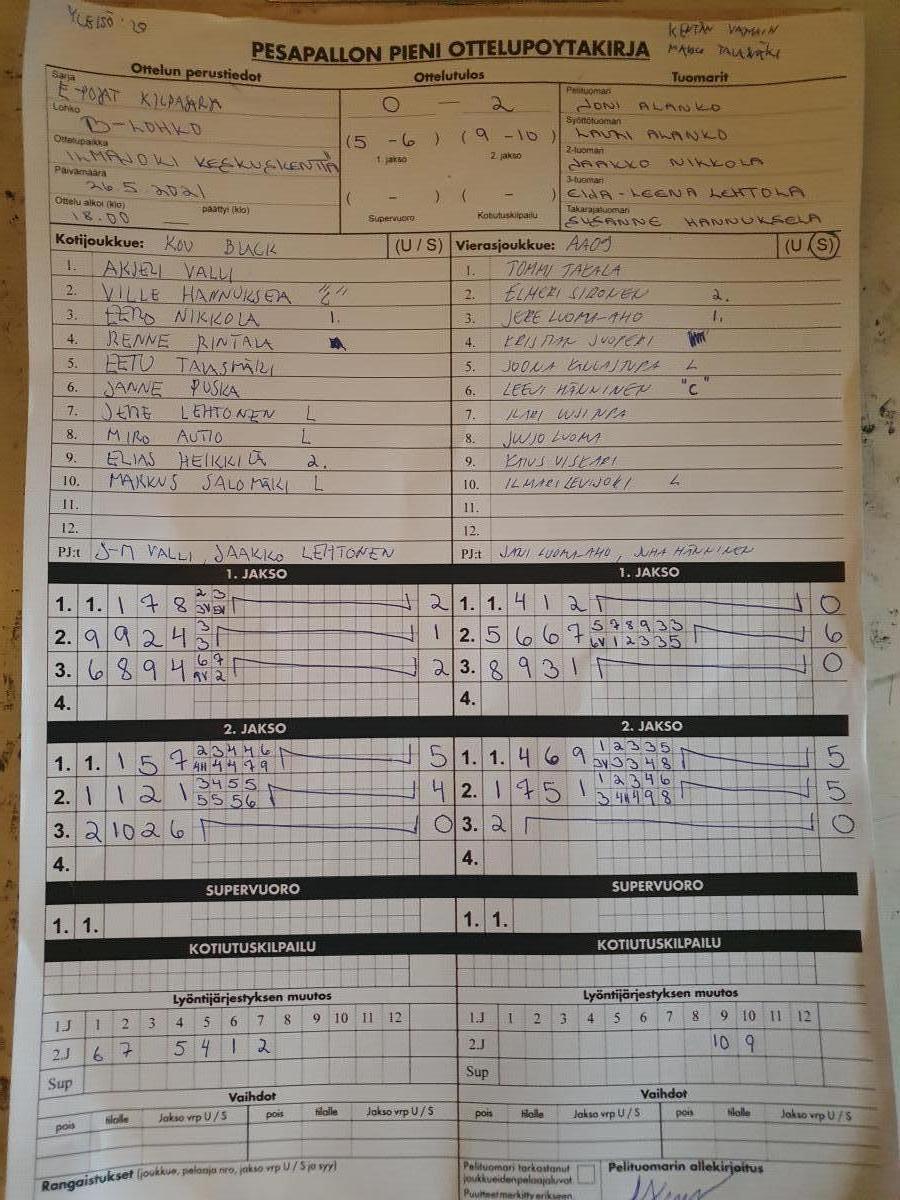 YLEISÖ: 20
KENTÄN VAHAIN
PESÄPALLON PIENI OTTELUPÖYTÄKIRJA
Ottelun perustiedot
Sarja
E-POJAT KILPASARJA
Lohko
B-LOHKO
Ottelupaikka
ILMAJOKI KESKUSKENTTÄ
Päivämäärä
26.5.2021
Ottelu alkoi (klo) päättyi (klo)
18.00
Ottelutulos
0 — 2
(5 - 6) (9 - 10)
1. jakso 2. jakso
( - ) ( - )
Supervuoro Kotiutuskilpailu
Tuomarit
Pelituomari
JONI ALANKO
Syöttötuomari
LAURI ALANKO
2-tuomari
JAAKKO NIKKOLA
3-tuomari
EIJA-LEENA LEHTOLA
Takarajatuomari
SUSANNE HANNUKSELA
Kotijoukkue: KOU BLACK (U / S)
1. AKSELI VALLI
2. VILLE HANNUKSELA "C"
3. EERO NIKKOLA 1.
4. RENNE RINTALA
5. EETU TALASMÄKI
6. JANNE PUSKA
7. JERE LEHTONEN L
8. MIRO AUTIO L
9. ELIAS HEIKKILÄ 2.
10. MARKUS SALOMÄKI L
11.
12.
PJ:t J-M VALLI, JAAKKO LEHTONEN
Vierasjoukkue: (U / S)
1. TOMMI TAKALA
2. ELMERI SIRONEN 2.
3. JERE LUOMA-AHO 1.
4.
5. JOONA L
6. LEEVI HÄNNINEN "C"
7. ILARI
8. JUUSO LUOMA
9. KAIUS VISKARI
10. ILMARI LEVIJOKI L
11.
12.
PJ:t JANI LUOMA-AHO, JUHA HÄNNINEN
1. JAKSO
1. 1. 1 7 8 2 3 2
3V 5V
2. 9 9 2 4 3 1
3
3. 6 8 9 4 6 7 2
9V 2
4.
1. JAKSO
1. 1. 4 1 2 0
2. 5 6 6 7 5 7 8 9 3 3 6
6V 1 2 3 3 5
3. 8 9 3 1 0
4.
2. JAKSO
1. 1. 1 5 7 2 3 4 4 6 5
4H 4 4 7 9
2. 1 1 2 1 3 4 5 5 4
5 5 5 6
3. 2 10 2 6 0
4.
2. JAKSO
1. 1. 4 6 9 1 2 3 3 5 5
3V 3 3 4 8
2. 1 7 5 1 1 2 3 4 6 5
3 4H 4 9 8
3. 2 0
4.
SUPERVUORO
1. 1.
SUPERVUORO
1. 1.
KOTIUTUSKILPAILU
KOTIUTUSKILPAILU
Lyöntijärjestyksen muutos
1.J 1 2 3 4 5 6 7 8 9 10 11 12
2.J 6 7 5 4 1 2
Sup
Lyöntijärjestyksen muutos
1.J 1 2 3 4 5 6 7 8 9 10 11 12
2.J 10 9
Sup
Vaihdot
pois tilalle Jakso vrp U / S pois tilalle Jakso vrp U / S
Vaihdot
pois tilalle Jakso vrp U / S pois tilalle Jakso vrp U / S
Rangaistukset (joukkue, pelaaja nro, jakso vrp U / S ja syy)
Pelituomari tarkastanut
joukkueidenpelaajaluvat
Puutteet merkitty erikseen
Pelituomarin allekirjoitus